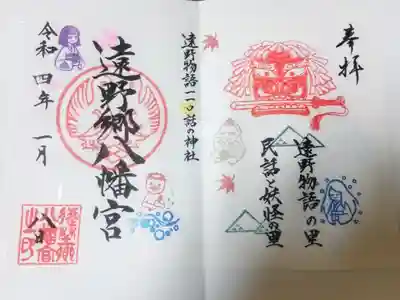 奉拝
遠野物語の里
民話と妖怪の里
遠野物語一一〇話の神社
遠野郷八幡宮
令和四年一月
八日